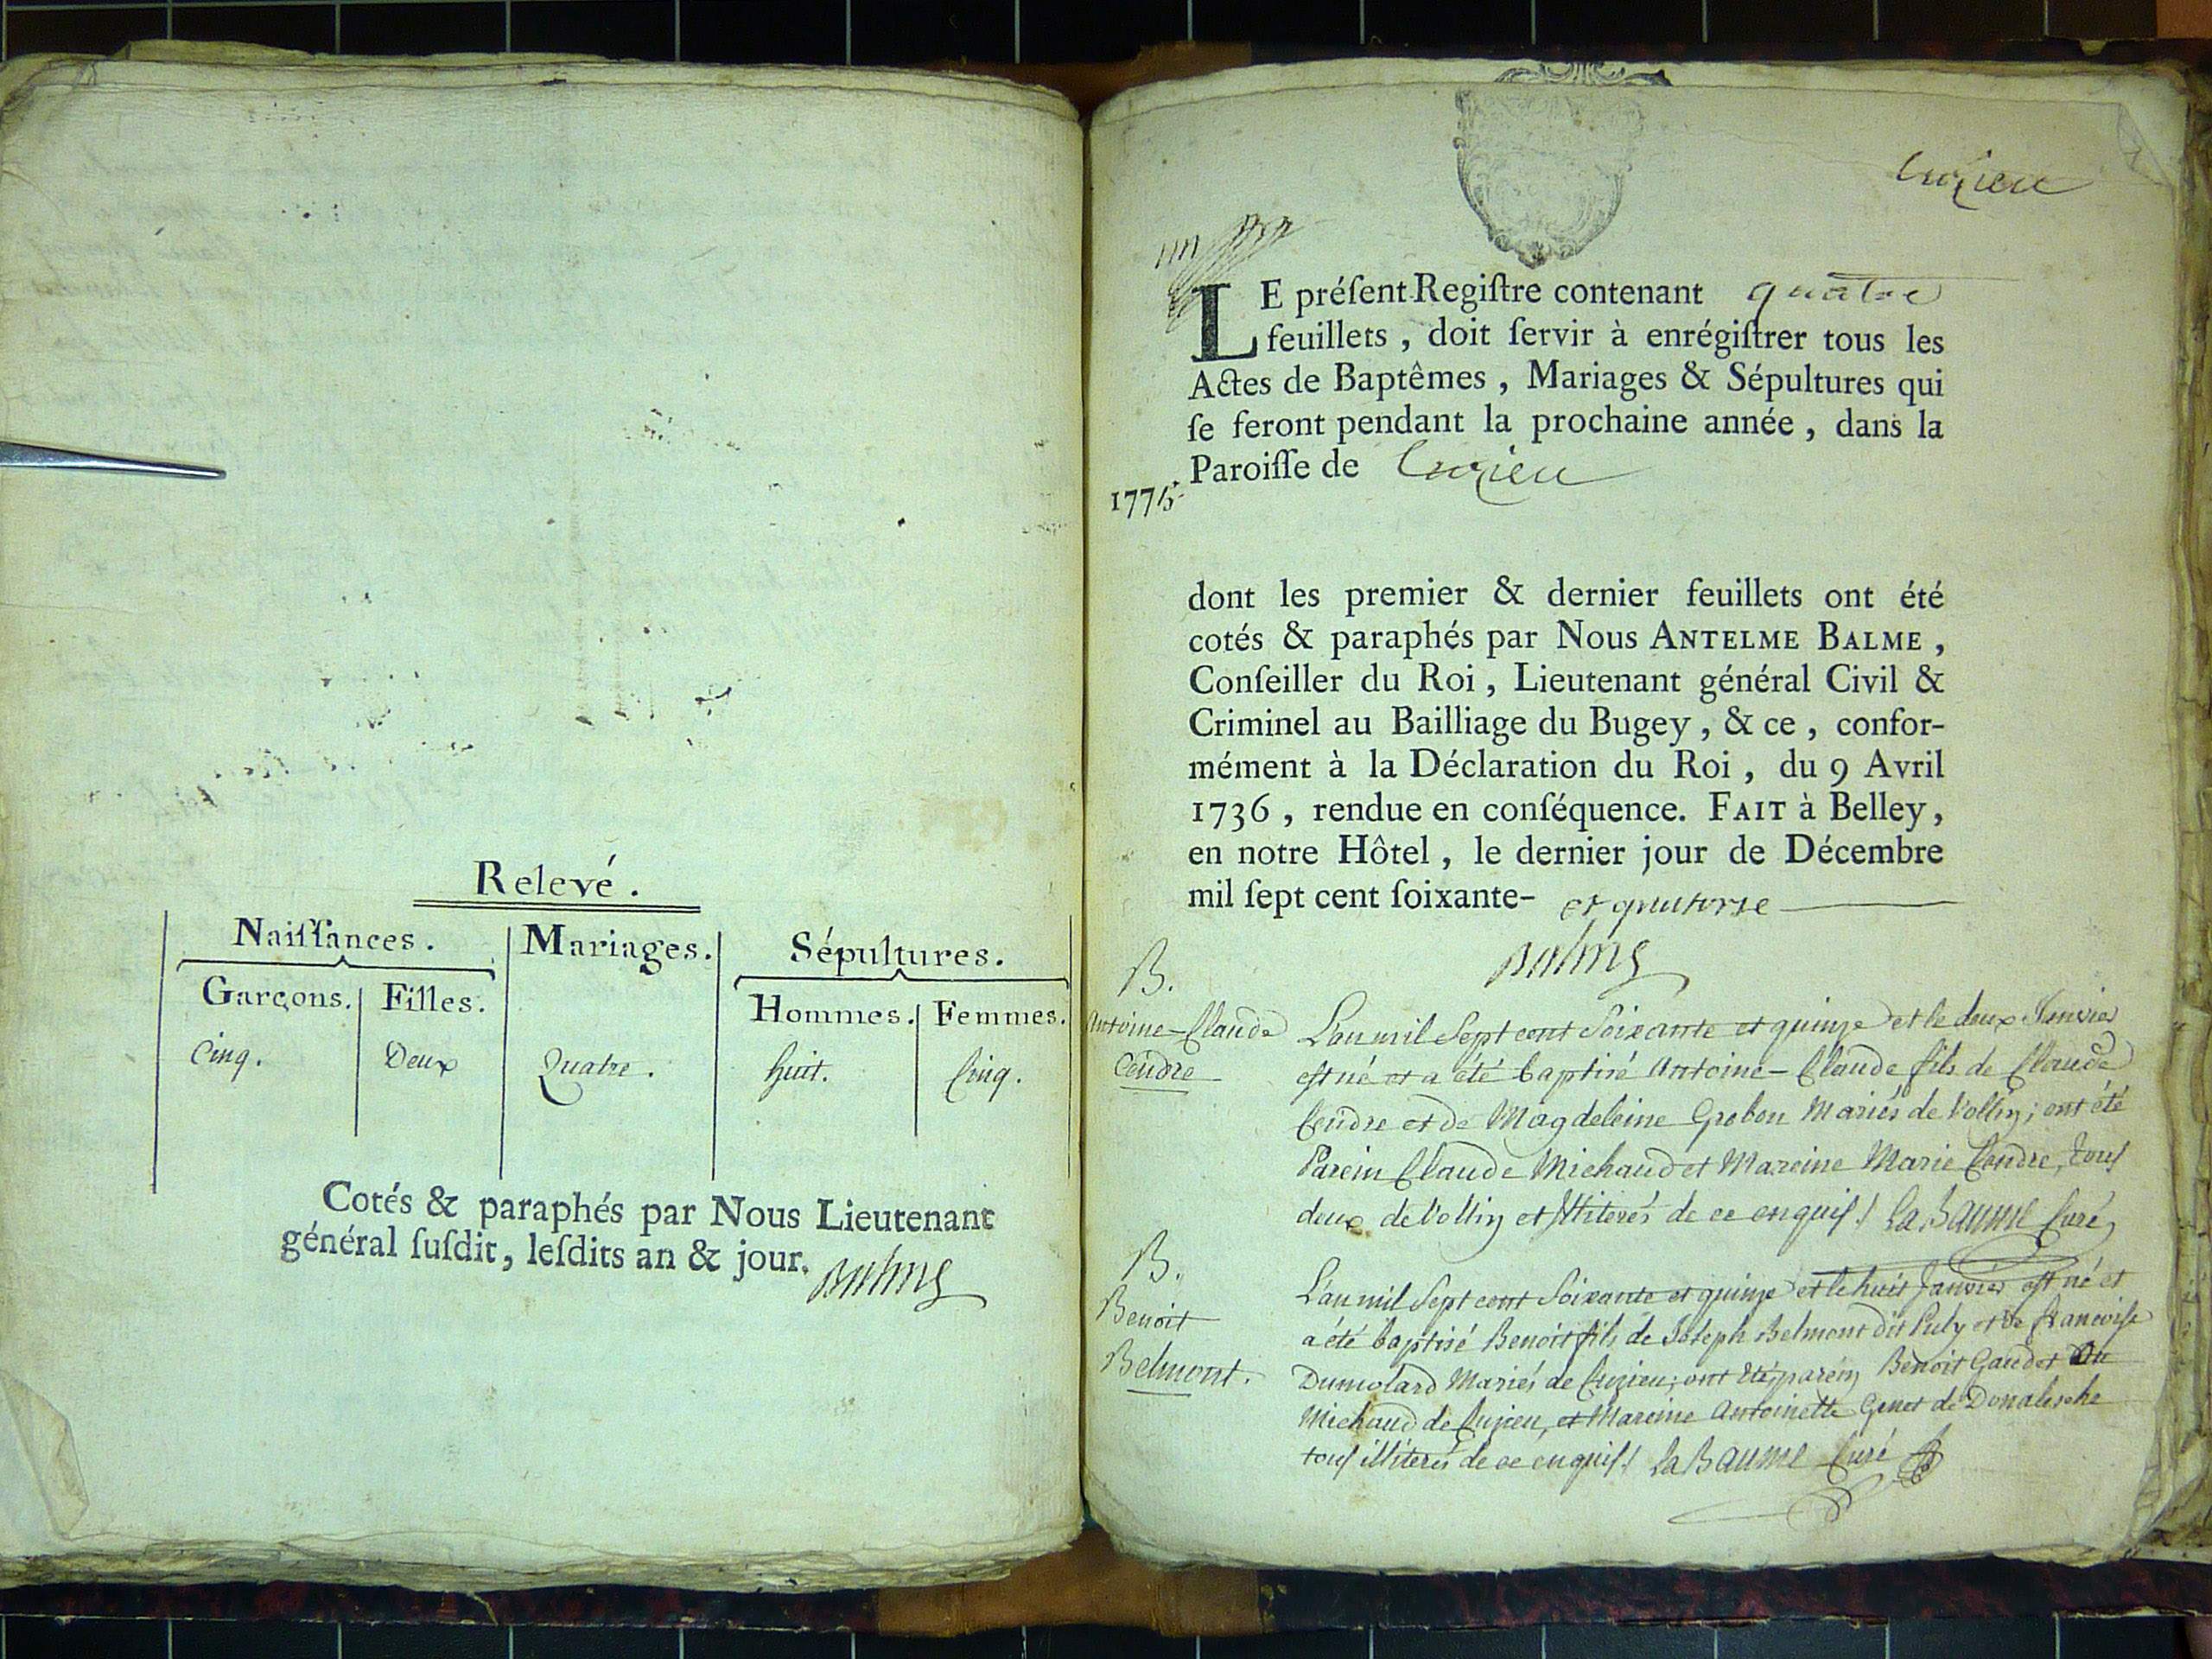 Relevé.
Naiſſances. Mariages. Sépultures.
Garçons. Filles. Hommes. Femmes.
Cinq. Deux Quatre. huit. Cinq.
Cotés & paraphés par Nous Lieutenant
général ſuſdit, leſdits an & jour.
Balme
Cuzieu
LE préſent Regiſtre contenant quatre
feuillets, doit ſervir à enrégiſtrer tous les
Actes de Baptêmes, Mariages & Sépultures qui
ſe feront pendant la prochaine année, dans la
Paroiſſe de Cuzieu
1775
dont les premier & dernier feuillets ont été
cotés & paraphés par Nous ANTELME BALME,
Conſeiller du Roi, Lieutenant général Civil &
Criminel au Bailliage du Bugey, & ce, confor-
mément à la Déclaration du Roi, du 9 Avril
1736, rendue en conſéquence. FAIT à Belley,
en notre Hôtel, le dernier jour de Décembre
mil ſept cent ſoixante- et quatorze
Balme
B.
Antoine-Claude
Cendre
L'an mil Sept cent Soixante et quinze et le deux Janvier
est né et a été baptisé Antoine-Claude fils de Claude
Cendre et de Magdeleine Grobon Mariés de Vollin; ont été
Parein Claude Michaud et Mareine Marie Cendre, tous
deux de Vollin et illiterés de ce enquis! La Baume Curé
B.
Benoit
Belmont.
L'an mil Sept cent Soixante et quinze et le huit Janvier est né et
a été baptisé Benoit fils de Joseph Belmont dit Puly et de francoise
Dumolard Mariés de Cuzieu; ont été parein Benoit Gaudet
Michaud de Cuzieu, et Mareine Antoinette Genet de
tous illiterés de ce enquis! La Baume Curé